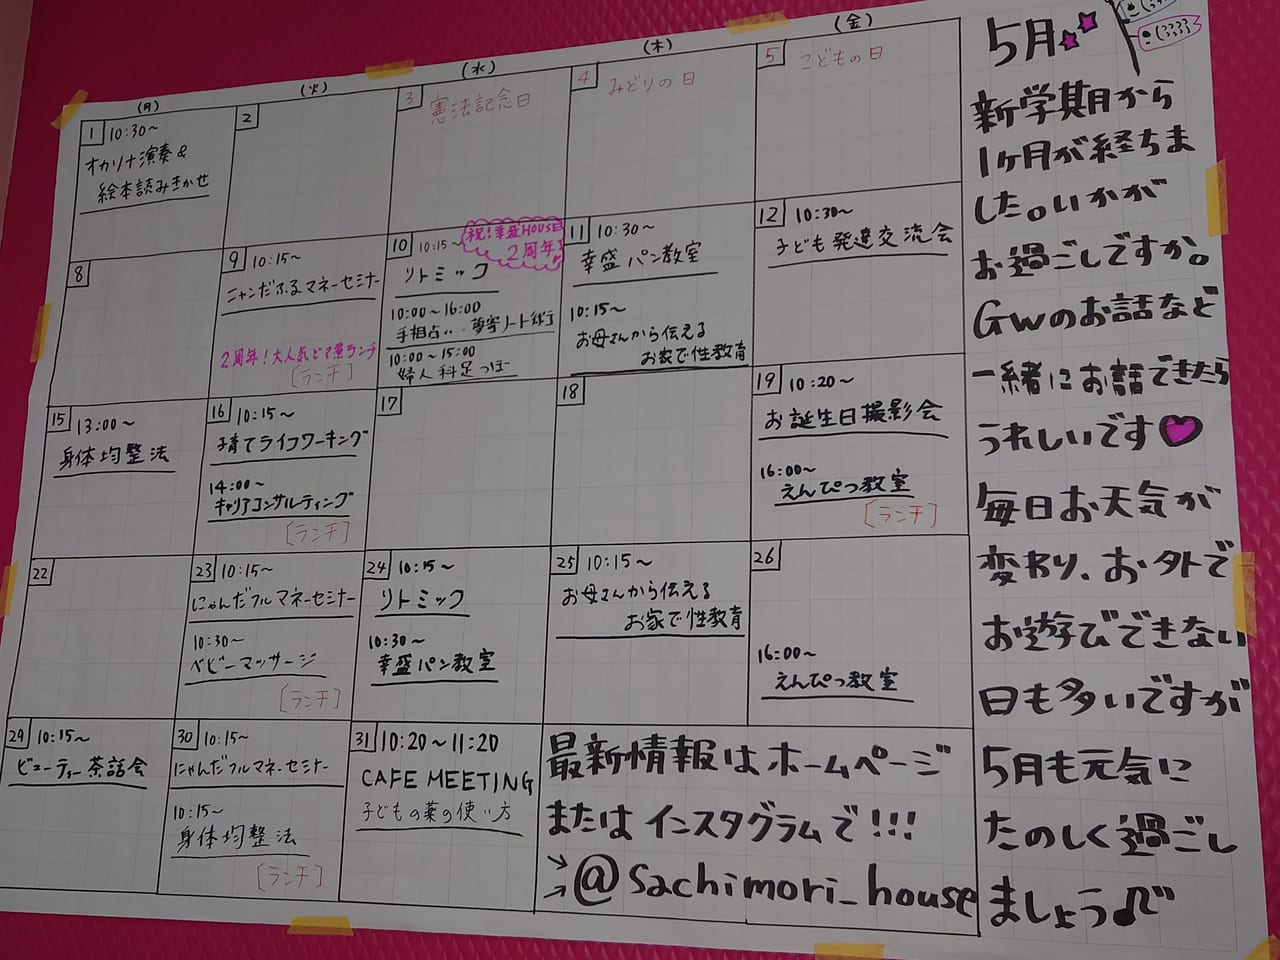 (月)
(火)
(水)
(木)
(金)
1 10:30~
オカリナ演奏&
絵本読みきかせ
2
3 憲法記念日
4 みどりの日
5 こどもの日
8
9 10:15~
ニャンだふるマネーセミナー
2周年!大人気どて煮ランチ
[ランチ]
10 10:15~
祝!幸盛HOUSE
2周年!
リトミック
10:00~16:00
手相占い
10:00~15:00
婦人科足つぼ
11 10:30~
幸盛パン教室
10:15~
お母さんから伝える
お家で性教育
12 10:30~
子ども発達交流会
15 13:00~
身体均整法
16 10:15~
子育てライフワーキング
14:00~
キャリアコンサルティング
[ランチ]
17
18
19 10:20~
お誕生日撮影会
16:00~
えんぴつ教室
[ランチ]
22
23 10:15~
にゃんだフルマネーセミナー
10:30~
ベビーマッサージ
[ランチ]
24 10:15~
リトミック
10:30~
幸盛パン教室
25 10:15~
お母さんから伝える
お家で性教育
26
16:00~
えんぴつ教室
29 10:15~
ビューティー茶話会
30 10:15~
にゃんだフルマネーセミナー
10:15~
身体均整法
[ランチ]
31 10:20~11:20
CAFE MEETING
子どもの薬の使い方
最新情報はホームページ
またはインスタグラムで!!!
@sachimori_house
5月
新学期から
1ヶ月が経ちま
した。いかが
お過ごしですか。
GWのお話など
一緒にお話できたら
うれしいです
毎日お天気が
変わり、お外で
お遊びできない
日も多いですが
5月も元気に
たのしく過ごし
ましょう♫